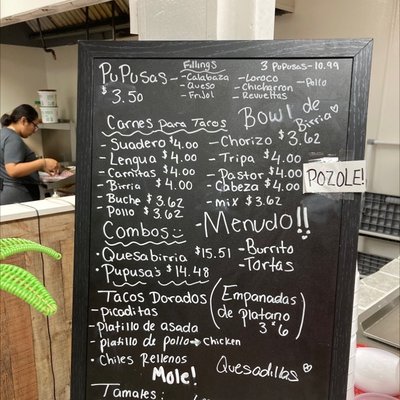 PuPusas
$3.50
Fillings
-Calabaza
-Queso
-Frijol
3 PuPusas-10.99
-Loroco
-Chicharron
-Revueltas
-Pollo
Bowl de
Birria
Carnes Para Tacos
-Suadero $4.00
-Lengua $4.00
-Carnitas $4.00
-Birria $4.00
-Buche $3.62
-Pollo $3.62
-Chorizo $3.62
-Tripa $4.00
-Pastor $4.00
-Cabeza $4.00
-mix $3.62
POZOLE!
Combos
•Quesabirria $15.51
•Pupusa's $14.48
-Menudo!!
-Burrito
-Tortas
Tacos Dorados
-picaditas
-platillo de asada
-platillo de pollo → Chicken
•Chiles Rellenos
Mole!
(Empanadas
de platano
3 x 6)
Quesadillas
Tamales: